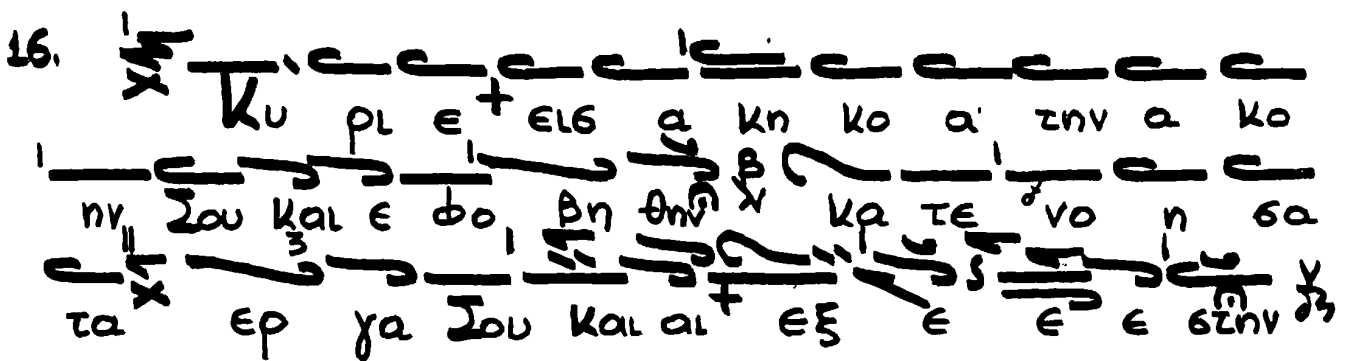 16. Κυ ρι ε εισ α κη κο α την α κο
ην Σου και ε φο βη θην κα τε νο η σα
τα ερ γα Σου και αι εξ ε ε ε στην